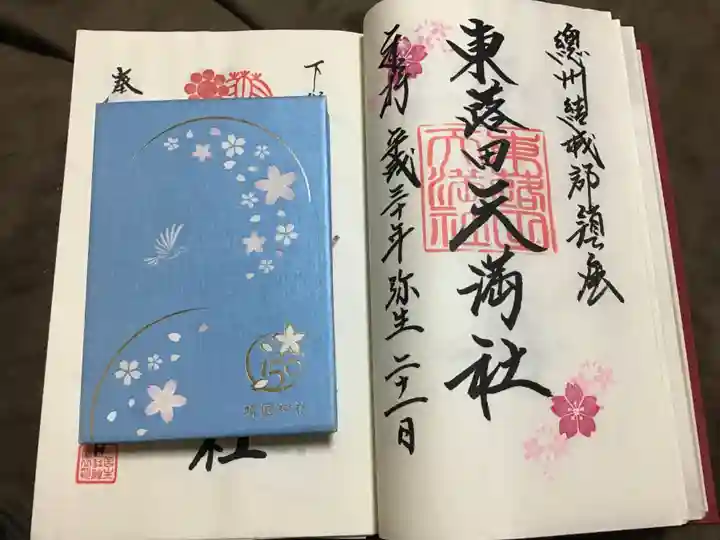 總州結城郡鎮座
東蕗田天満社
奉拝 平成三十年弥生二十一日
東蕗田天満社
下
奉
150
靖國神社
社